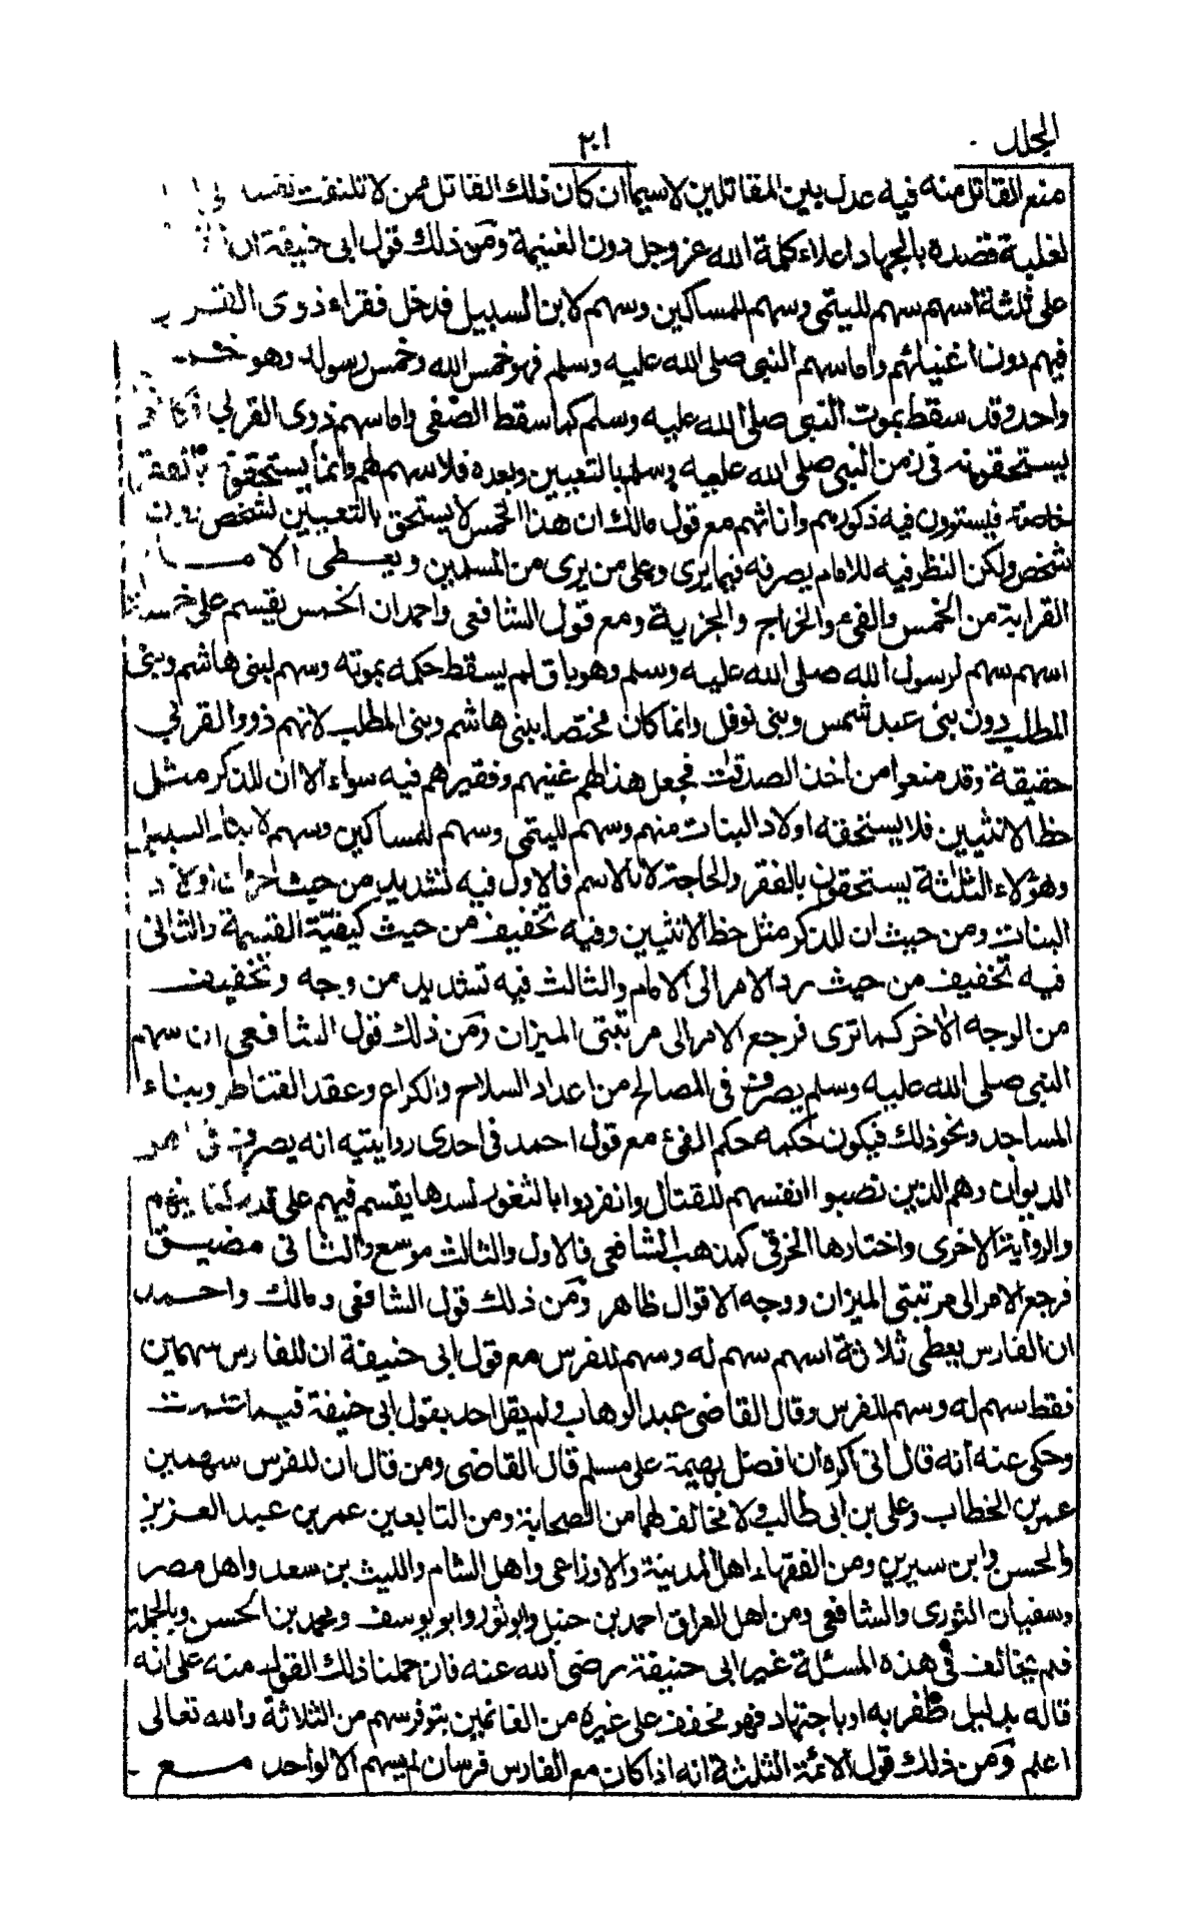 المجلد
٢٠١
منع القاتل منه فيه عدل بين المقاتلين لاسيما ان كان ذلك القاتل ممن لا تلتفت نفسه
لغلبة قصده بالجهاد اعلاء كلمة الله عز وجل دون الغنيمة ومن ذلك قول ابى حنيفة ان
على ثلثة اسهم سهم لليتمى وسهم للمساكين وسهم لابن السبيل فدخل فقراء ذوى القربى
فيهم دون اغنيائهم واما سهم النبى صلى الله عليه وسلم فهو خمس الله وخمس رسوله وهو خمس
واحد وقد سقط بموت النبى صلى الله عليه وسلم كما سقط الصفى واما سهم ذوى القربى
يستحقونه فى زمن النبى صلى الله عليه وسلم بالتعيين وبعده فلا سهم لهم وانما يستحقون بالفقر
خاصة فيستوون فيه ذكورهم واناثهم مع قول مالك ان هذا الخمس لا يستحق بالتعيين لشخص دون
شخص ولكن النظر فيه للامام يصرفه فيما يرى وعلى من يرى من المسلمين ويعطى الامام
القرابة من الخمس والفئ والخراج والجزية ومع قول الشافعى واحمد ان الخمس يقسم على خمسة
اسهم سهم لرسول الله صلى الله عليه وسلم وهو باق لم يسقط حكمه بموته وسهم لبنى هاشم وبنى
المطلب دون بنى عبد شمس وبنى نوفل وانما كان مختصا ببنى هاشم وبنى المطلب لانهم ذوو القربى
حقيقة وقد منعوا من اخذ الصدقات فجعل هذا لهم غنيهم وفقيرهم فيه سواء الا ان للذكر مثل
حظ الانثيين فلا يستحقه اولاد البنات منهم وسهم لليتمى وسهم للمساكين وسهم لابناء السبيل
وهؤلاء الثلثة يستحقون بالفقر والحاجة لا بالاسم فالاول فيه تشديد من حيث اخراج اولاد
البنات ومن حيث ان للذكر مثل حظ الانثيين وفيه تخفيف من حيث كيفية القسمة والثانى
فيه تخفيف من حيث رد الامر الى الامام والثالث فيه تشديد من وجه وتخفيف
من الوجه الاخر كما ترى فرجع الامر الى مرتبتى الميزان ومن ذلك قول الشافعى ان سهم
النبى صلى الله عليه وسلم يصرف فى المصالح من اعداد السلاح والكراع وعقد القناطر وبناء
المساجد ونحو ذلك فيكون حكمه حكم الفئ مع قول احمد فى احدى روايتيه انه يصرف فى اهل
الديوان وهم الذين نصبوا انفسهم للقتال وانفردوا بالثغور لسدها يقسم فيهم على قدر كفايتهم
والرواية الاخرى واختارها الخرقى كمذهب الشافعى فالاول والثالث موسع والثانى مضيق
فرجع الامر الى مرتبتى الميزان ووجه الاقوال ظاهر ومن ذلك قول الشافعى ومالك واحمد
ان الفارس يعطى ثلاثة اسهم سهم له وسهم للفرس مع قول ابى حنيفة ان للفارس سهمين
فقط سهم له وسهم للفرس وقال القاضى عبد الوهاب ولم يقل احد بقول ابى حنيفة فيما اشتهرت
وحكى عنه انه قال انى اكره ان افضل بهيمة على مسلم قال القاضى ومن قال ان للفرس سهمين
عمر بن الخطاب وعلى بن ابى طالب ولا مخالف لهما من الصحابة ومن التابعين عمر بن عبد العزيز
والحسن وابن سيرين ومن الفقهاء اهل المدينة والاوزاعى واهل الشام والليث بن سعد واهل مصر
وسفيان الثورى والشافعى ومن اهل العراق احمد بن حنبل وابو ثور وابو يوسف ومحمد بن الحسن وبالجملة
فلم يخالف فى هذه المسئلة غير ابى حنيفة رضى الله عنه فان حملنا ذلك القول منه على انه
قاله بدليل ظفر به او باجتهاد فهو مخفف على غيره من الغانمين بتوفر سهم من الثلاثة والله تعالى
اعلم ومن ذلك قول الائمة الثلثة انه اذا كان مع الفارس فرسان لم يسهم الا لواحد مع